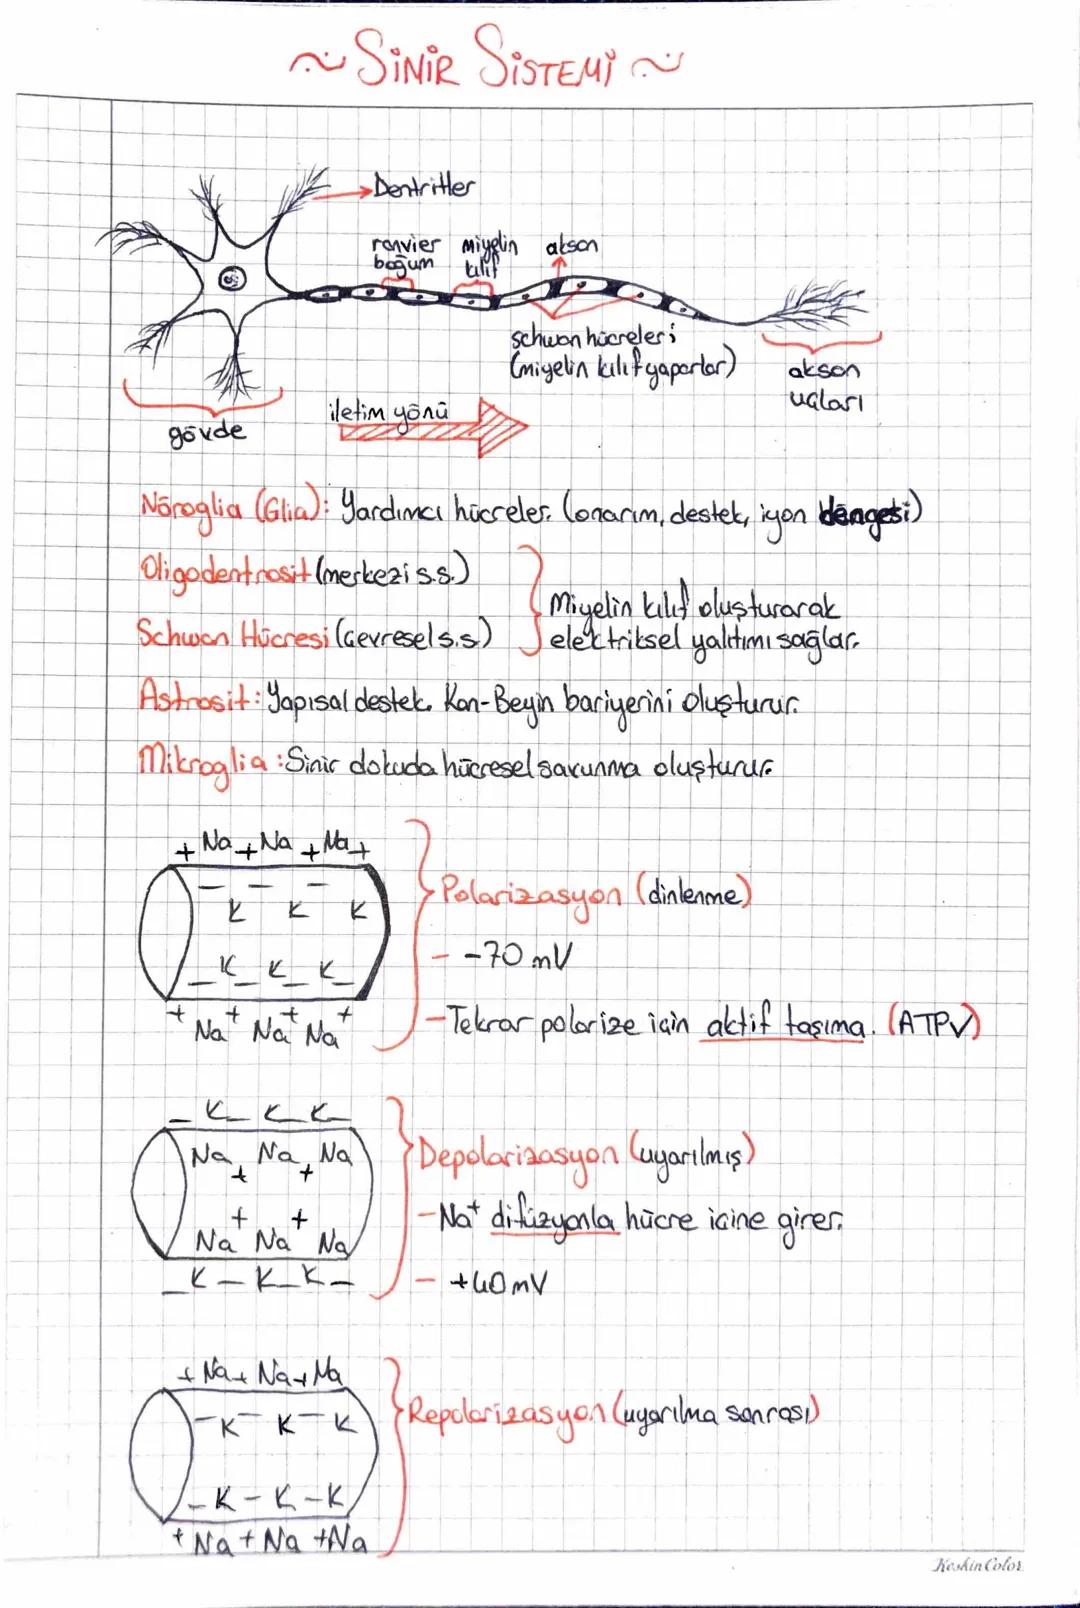 ~ SİNİR SİSTEMİ ~
Dentritler
ranvier
boğum
miyelin
kılıf
akson
schwan hücreleri
(miyelin kılıf yaparlar)
akson
uçları
gövde
iletim yönü
Nöroglia (Glia): Yardımcı hücreler. (onarım, destek, iyon dengesi)
Oligodentrosit (merkezi s.s.)
Schwan Hücresi (Çevresel s.s)
Miyelin kılıf oluşturarak
elektriksel yalıtımı sağlar.
Astrosit: Yapısal destek. Kan-Beyin bariyerini oluşturur.
Mikroglia: Sinir dokuda hücresel savunma oluşturur.
+ Na + Na + Na +
— — —
K K K
_ K _ K _ K _
+ Na + Na + Na +
Polarizasyon (dinlenme)
- -70 mV
- Tekrar polarize için aktif taşıma. (ATP√)
_ K _ K _ K _
Na + Na + Na
+ +
Na Na Na
_ K _ K _ K _
Depolarizasyon (uyarılmış)
- Na⁺ difüzyonla hücre içine girer.
- +40 mV
+ Na + Na + Na
— K — K — K
_ K - K - K
+ Na + Na + Na
Repolarizasyon (uyarılma sonrası)
Keskin Color